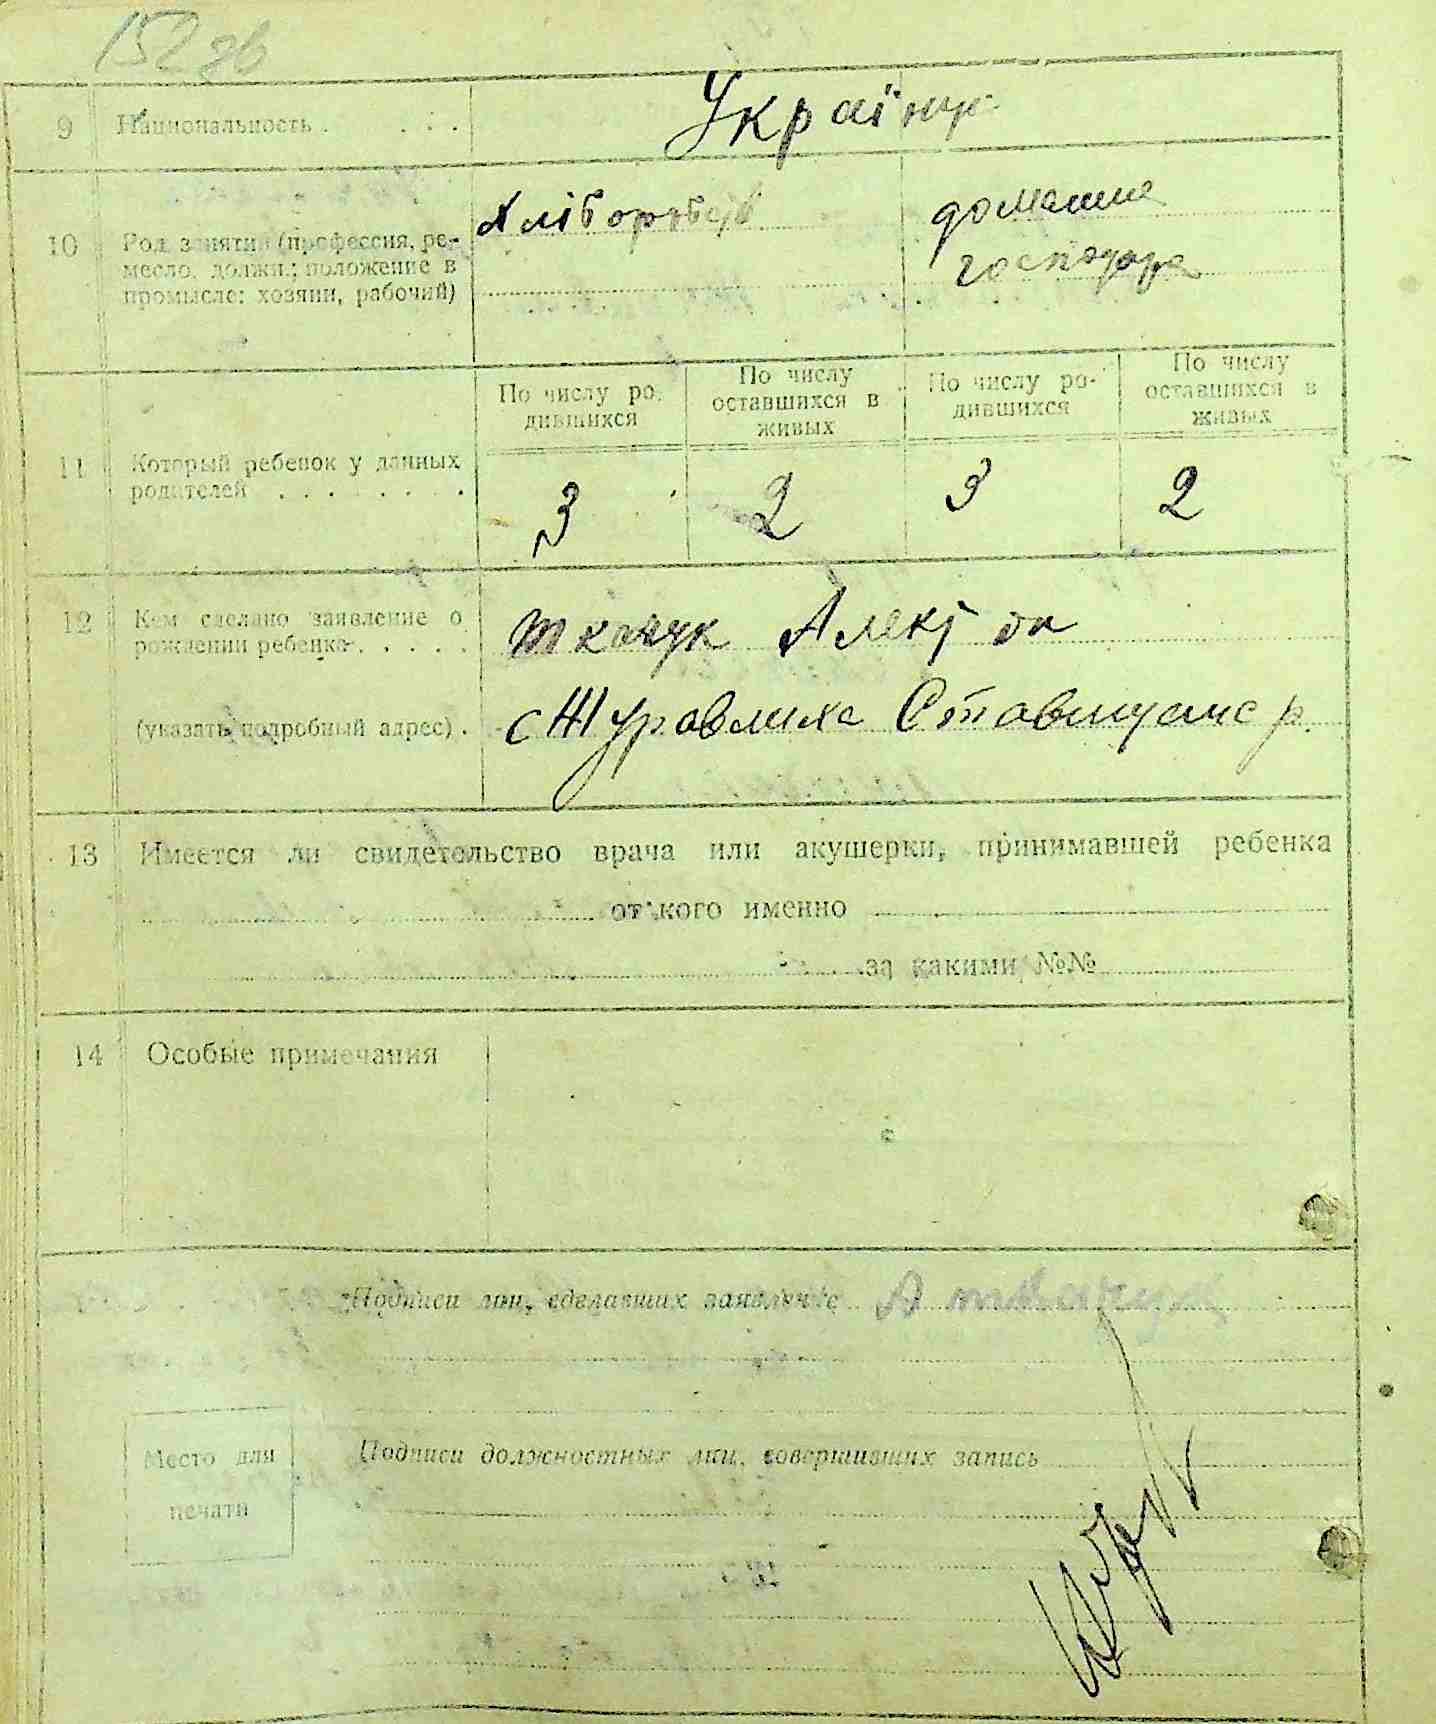 152 зв
9 Национальность . . . . Україн
10 Род занятий (профессия, ре-
месло, должн.; положение в
промысле: хозяин, рабочий)
Хлібороб
домашнє
господар
11 Который ребенок у данных
родителей . . . . . . . .
По числу ро-
дившихся
По числу
оставшихся в
живых
По числу ро-
дившихся
По числу
оставшихся в
живых
3 2 3 2
12 Кем сделано заявление о
рождении ребенка . . . . .
(указать подробный адрес) .
Ткачук
с Журавлиха Ставищанс р.
13 Имеется ли свидетельство врача или акушерки, принимавшей ребенка
от кого именно
за какими №№
14 Особые примечания
Подписи лиц, сделавших заявление А Ткачук
Место для
печати
Подписи должностных лиц, совершивших запись